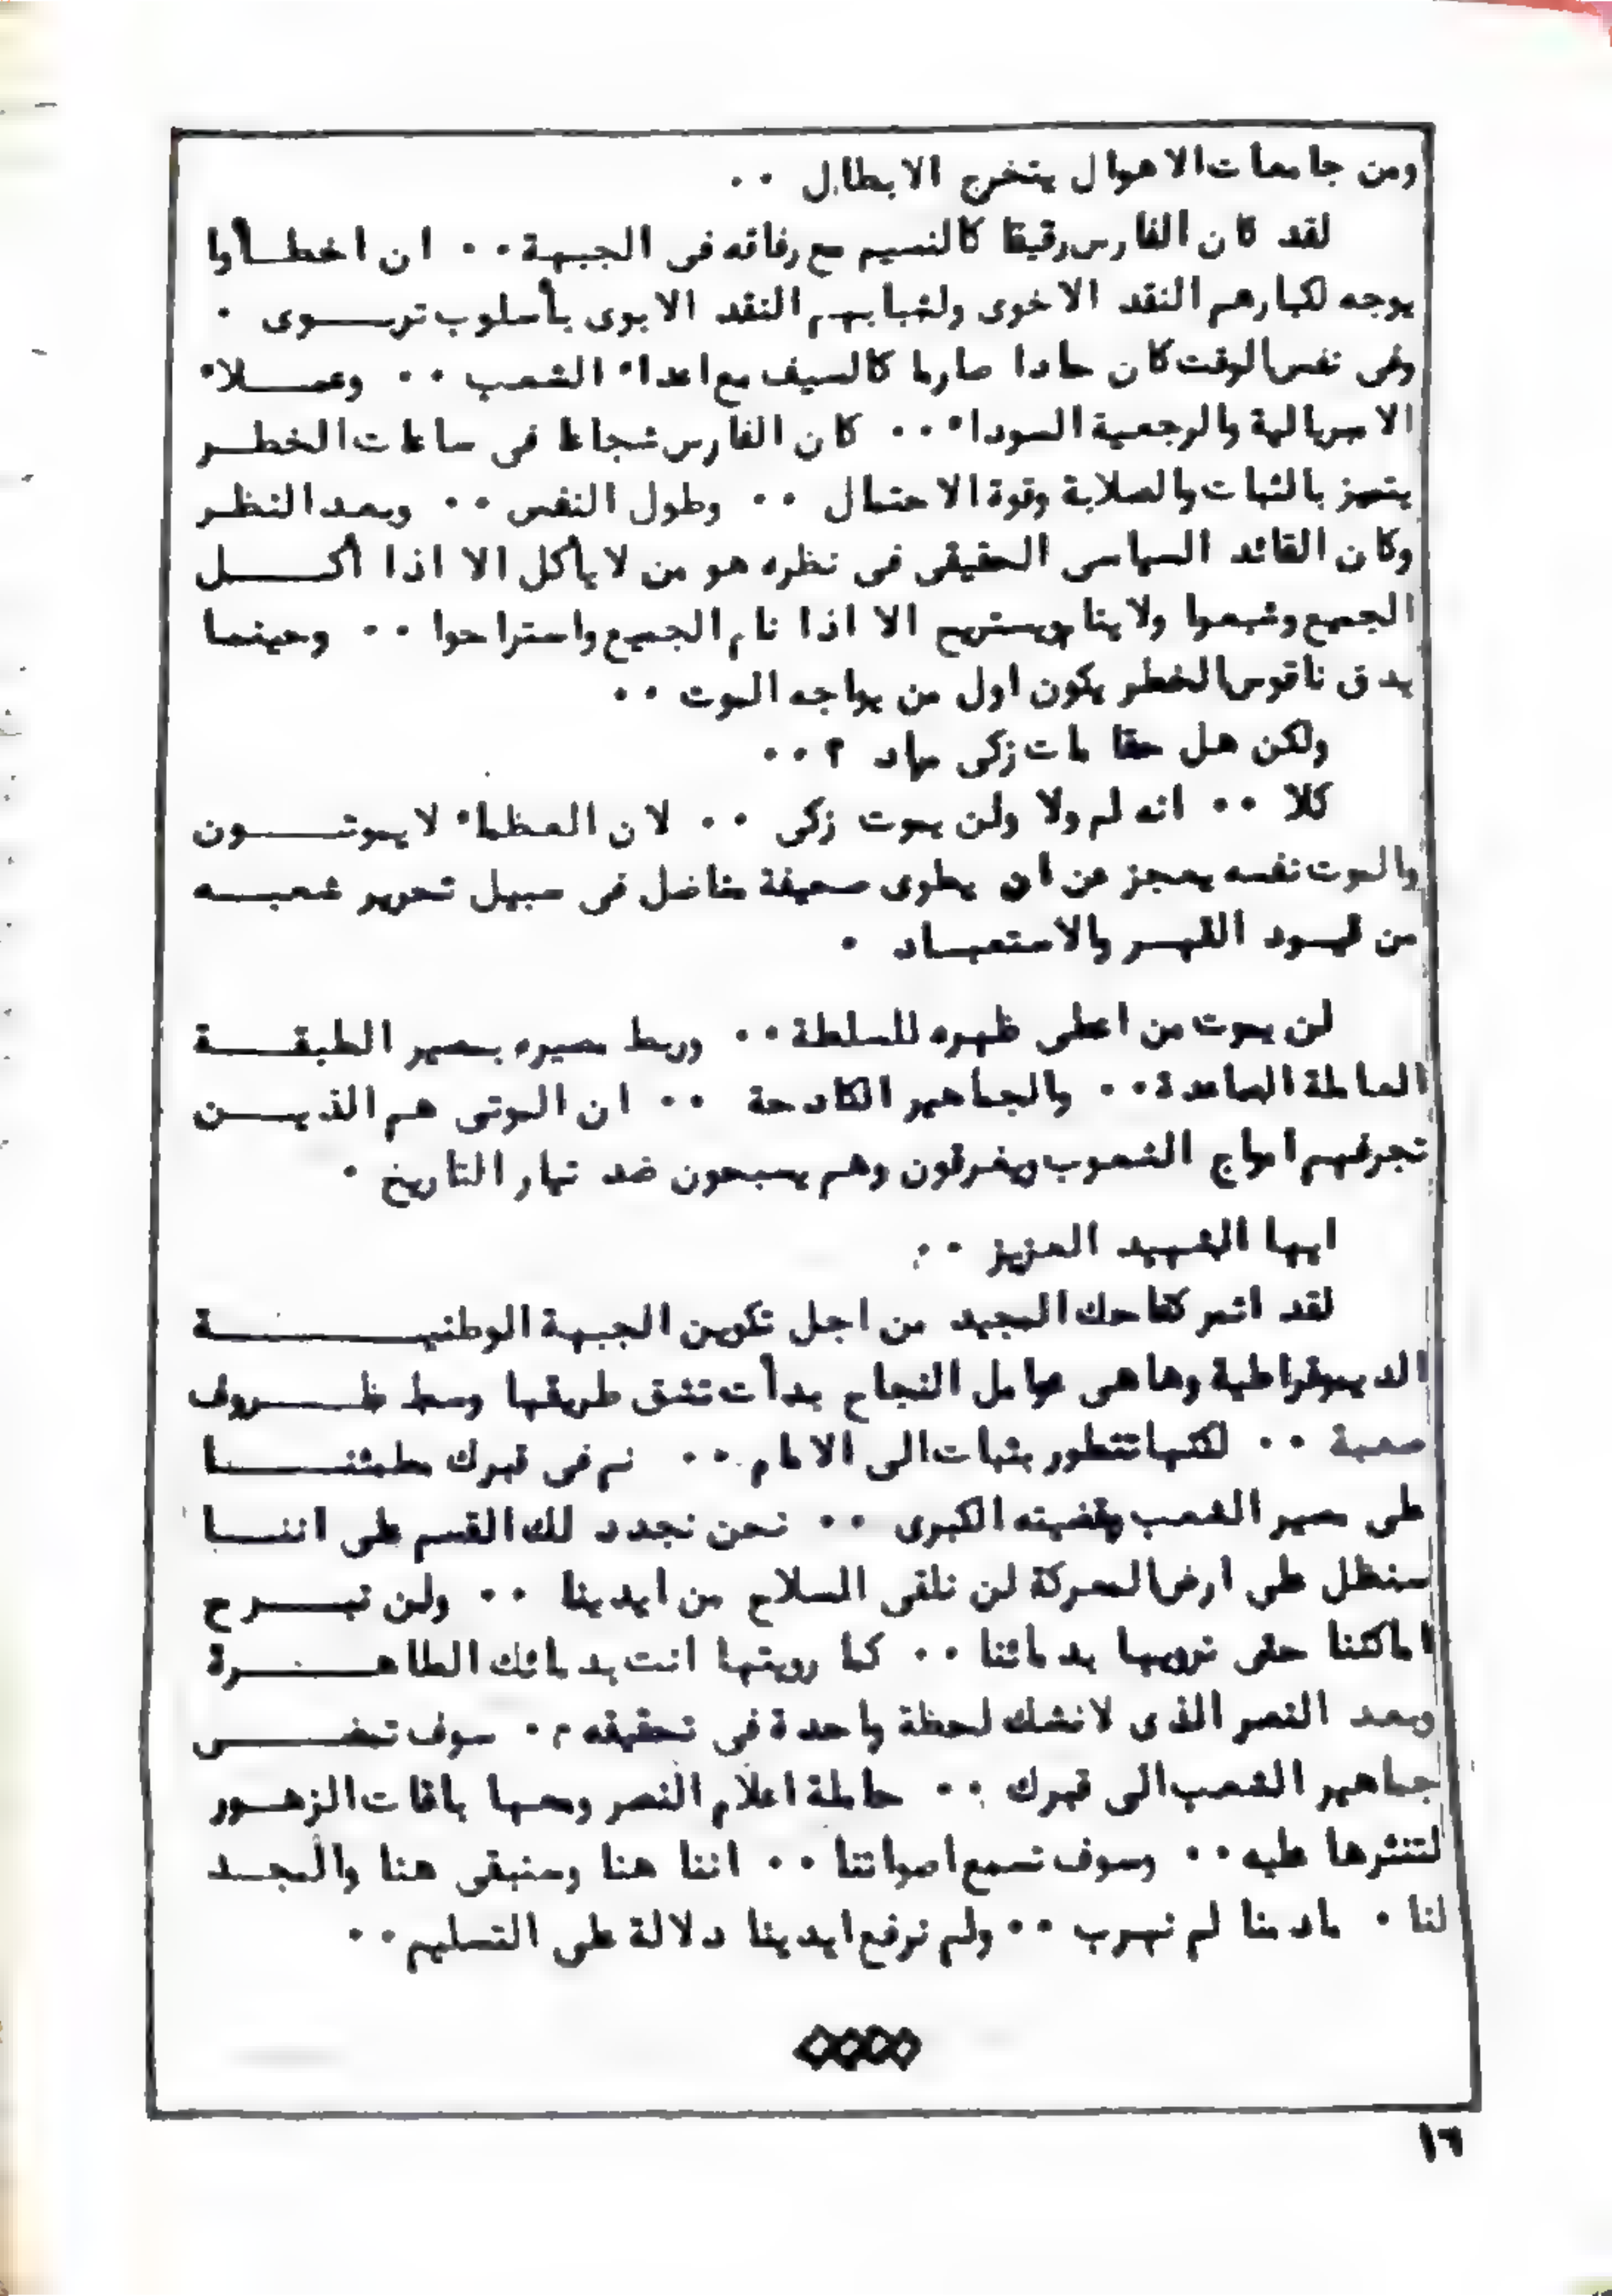 ومن جامعات الاهوال يتخرج الابطال ٠٠
لقد كان الفارس رقيقا كالنسيم مع رفاقه فى الجبهة ٠٠ ان اخطــأوا
يوجه لكبارهم النقد الاخوى ولشبابهم النقد الابوى بأسلوب تربـــوى ٠
وفى نفس الوقت كان حادا صارما كالسيف مع اعداء الشعب ٠٠ وعمـــلاء
الامبريالية والرجعية السوداء ٠٠ كان الفارس شجاعا فى ساعات الخطــر
يتميز بالثبات والصلابة وقوة الاحتمال ٠٠ وطول النفس ٠٠ وبعد النظــر
وكان القائد السياسى الحقيقى فى نظره هو من لا يأكل الا اذا أكـــل
الجميع وشبعوا ولا ينام ويستريح الا اذا نام الجميع واستراحوا ٠٠ وحينما
يدق ناقوس الخطر يكون اول من يواجه الموت ٠٠
ولكن هل حقا مات زكى مراد ؟ ٠٠
كلا ٠٠ انه لم ولا ولن يموت زكى ٠٠ لان العظماء لا يموتـــون
والموت نفسه يعجز عن ان يطوى صحيفة مناضل فى سبيل تحرير شعبــه
من قيــود القهــر والاستعبــاد ٠
لن يموت من اعطى ظهره للسلطة ٠٠ وربط مصيره بمصير الطبقـــة
العاملة الصاعدة ٠٠ والجماهير الكادحة ٠٠ ان الموتى هم الذيـــن
تجرفهم امواج الشعوب ويغرقون وهم يسبحون ضد تيار التاريخ ٠
ايها الشهيد العزيز ٠٠
لقد اثمر كفاحك المجيد من اجل تكوين الجبهة الوطنيـــــة
الديموقراطية وها هى عوامل النجاح بدأت تشق طريقها وسط ظـــروف
صعبة ٠٠ لكنها تتطور بثبات الى الامام ٠٠ نم فى قبرك مطمئنـــا
على مصير الشعب وقضيته الكبرى ٠٠ نحن نجدد لك القسم على اننـــا
سنظل على ارض المعركة لن نلقى السلاح من ايدينا ٠٠ ولن نبـــرح
اماكننا حتى نرويها بدمائنا ٠٠ كما رويتها انت بدمائك الطاهـــرة
وبعد النصر الذى لا نشك لحظة واحدة فى تحقيقه ٠٠ سوف تمضـــى
جماهير الشعب الى قبرك ٠٠ حاملة اعلام النصر ومعها باقات الزهــور
لتنثرها عليه ٠٠ وسوف تسمع اصواتنا ٠٠ اننا هنا وسنبقى هنا والمجــد
لنا ٠ مادمنا لم نهرب ٠٠ ولم نرفع ايدينا دلالة على التسليم ٠٠
١٦